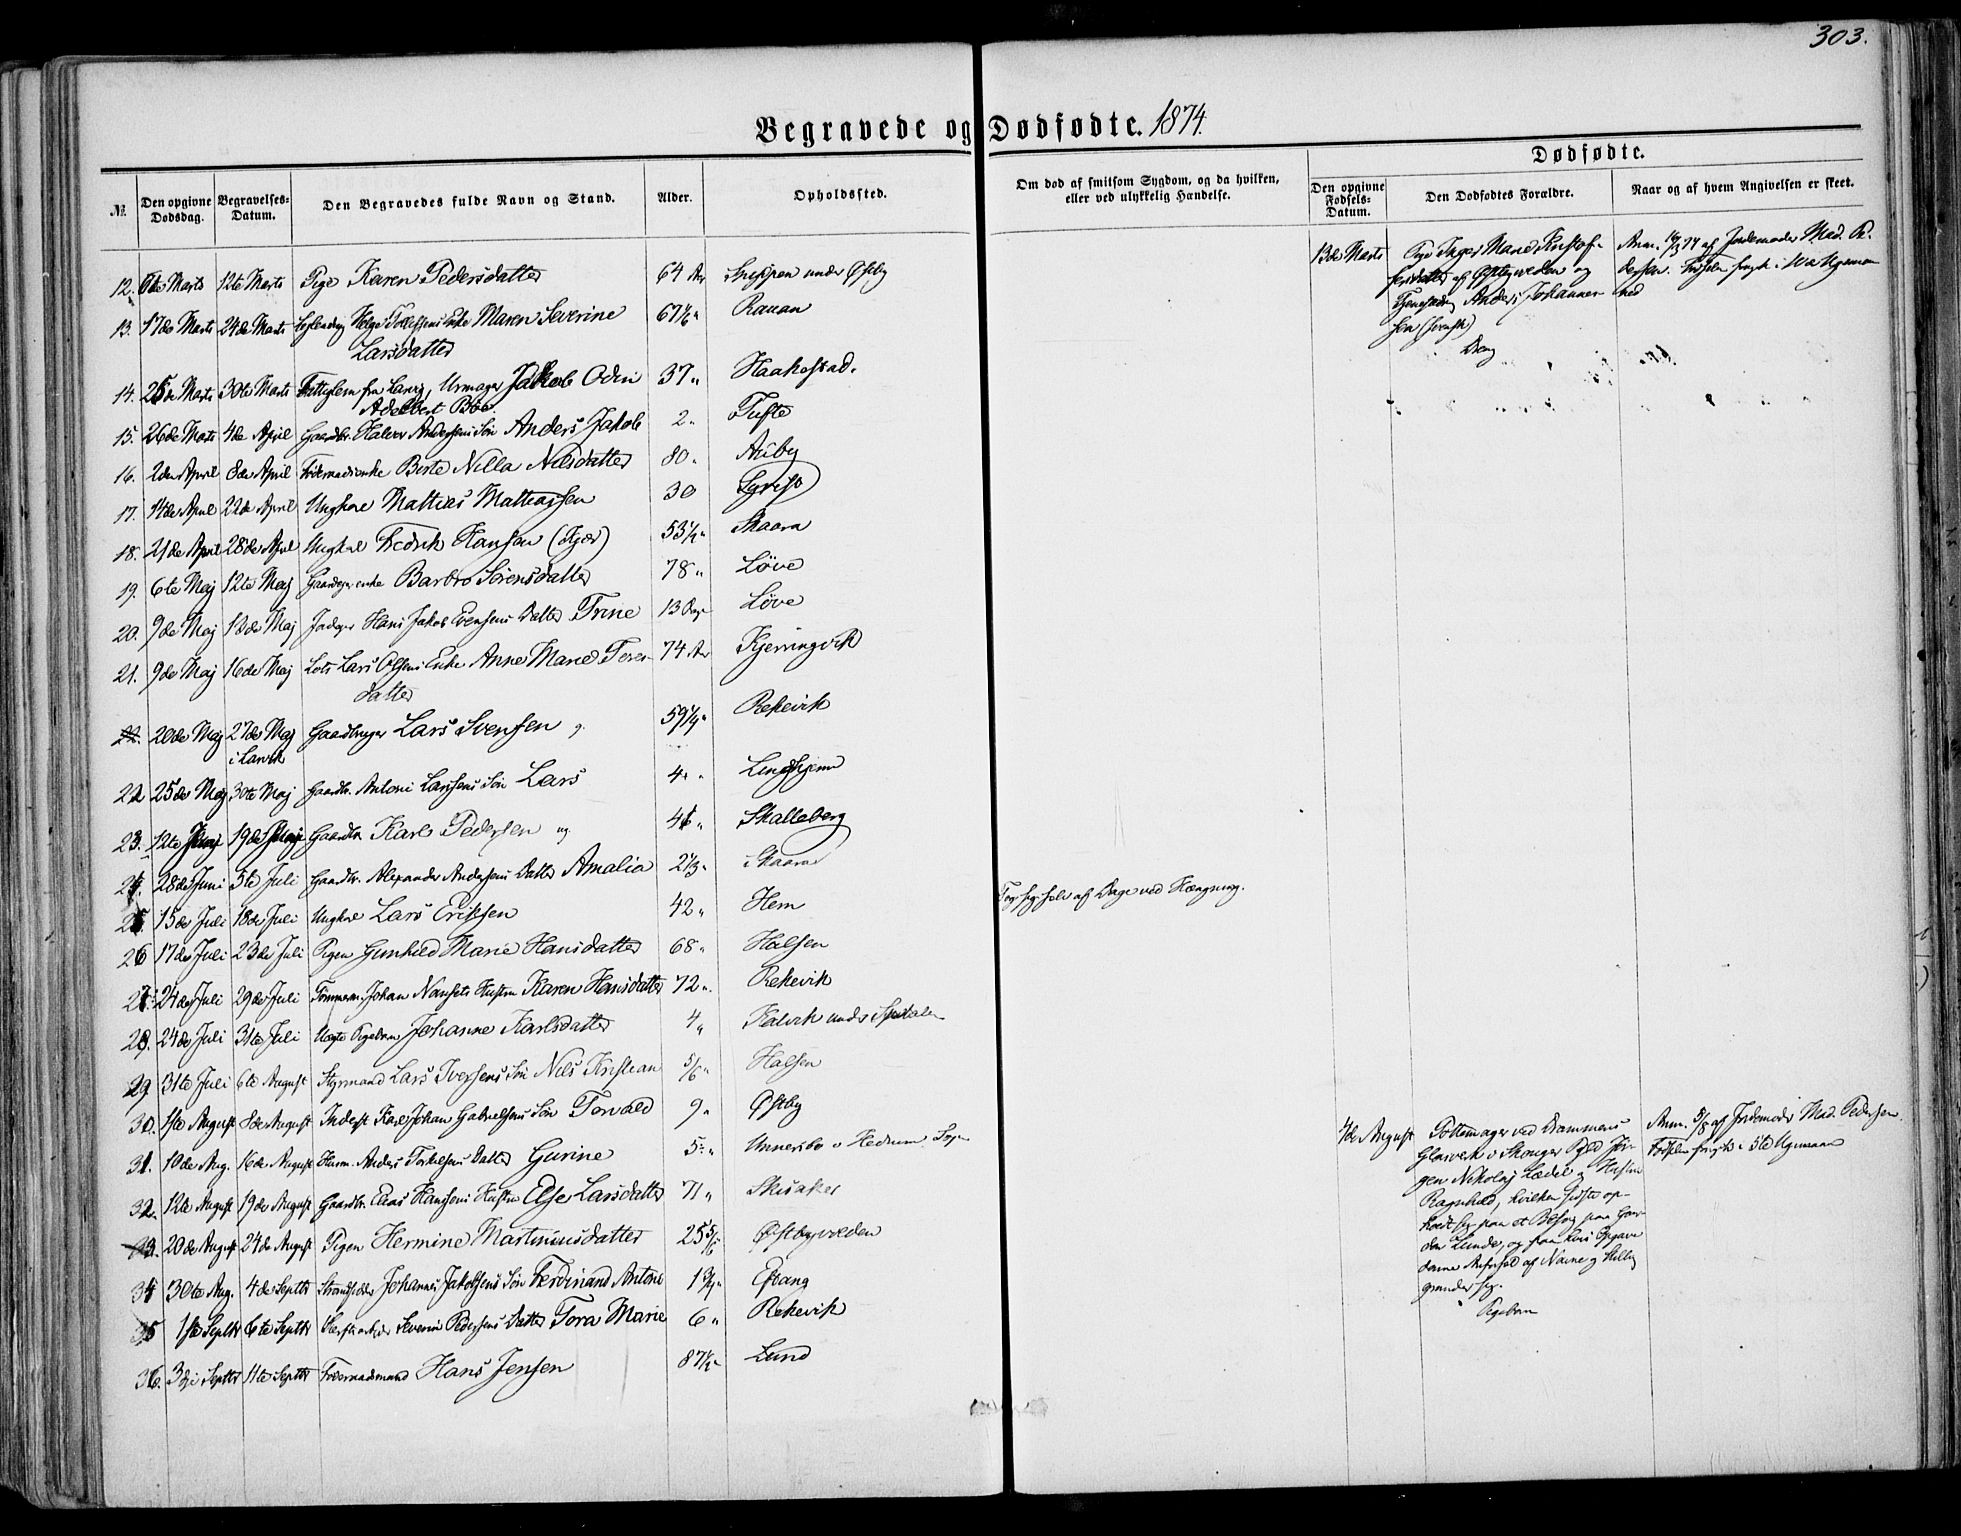 303.
Begravede og Dødfødte. 1874.
Dødfødte.
№
Den opgivne Dødsdag.
Begravelses-Datum.
Den Begravedes fulde Navn og Stand.
Alder.
Opholdssted.
Om død af smitsom Sygdom, og da hvilken, eller ved ulykkelig Hændelse.
Den opgivne Fødsels-Datum.
Den Dødfødtes Forældre.
Naar og af hvem Angivelsen er skeet.
12. 6te Marts 12te Marts Pige Karen Pedersdatter 64 Aar Sneppen under Østby
13. 17de Marts 24de Marts Helge Tollefsens Enke Maren Severine 67½ " Rauan
Larsdatter
14. 25de Marts 30te Marts fra Larvig, Urmager Jakob Odin 37 " Haakestad.
Adelbert Bøe.
15. 26de Marts 4de April Gaardbr. Halvor Andersens Søn Anders Jakob 2 " Tufte
16. 2den April 8de April Føderaadsenke Berte Nilla Nilsdatter 80 " Auby
17. 14de April 22de April Ungkarl Mathias Mathiassen 30
18. 21de April 28de April Ungkarl Fredrik Hansen (Kjær) 53½ " Skaara
19. 6te Maj 12te Maj Gaardeger enke Barbro Sørensdatter 78 " Løve
20. 9de Maj Maj Hans Jakob Evensens Datter Trine 13 Dage Løve
21. 9de Maj 16de Maj Lods Lars Olsens Enke Anne Marie Tores- 74 Aar Kjerringvik
datter
22. 20de Maj 27de Maj Gaardbruger Lars Svensen 59¼ " Rekevik
i Larvik
22 25de Maj 30te Maj Gaardbr. Antoni Larsens Søn Lars 4 " Linghjem
23. 12te 19de Gaardbr. Karl Pedersen 46 " Skalleberg
24. 28de Juni 5te Juli Gaardbr. Alexander Andersens Datter Amalia 2⅓ " Skaara
25 15de Juli 18de Juli Ungkarl Lars Eriksen 42 " Hem af Dage ved Hængning.
26 17de Juli 23de Juli Pigen Gunhild Marie Hansdatter 68 " Halsen
27. 24de Juli 29de Juli Tømmerm. Johan Nansets Hustru Karen Hansdatter 72 " Rekevik
28. 24de Juli 31te Juli Uægte Pigebarn Johanne Karlsdatter 4 " Kalvik under
29 31te Juli 6te August Styrmand Lars Iversens Søn Nils Kristian 5/6 " Halsen
30. 1ste August 8de August Inderst Karl Johan Gabrielsens Søn Torvald 9 " Østby
31. 10de Aug. 16de August Huusm. Anders Torkelsens Datter Gurine 5 " Unnersbo i Hedrum Sogn
32. 12te August 19de August Gaardbr. Claus Hansens Hustru Else Larsdatter 71 " Skisaker
33. 20de August 24de August Pigen Hermine Martiniusdatter 25 5/6 Østbyveden
34 30te Aug. 4de Septbr Strandsidder Johannes Jakobsens Søn Ferdinand Antoni 1¾ " Eftang
35 1ste Septbr 6te Septbr Severin Pedersens Datter Tora Marie 6 " Rekevik
36. 3die Septbr 11te Septbr Føderaadsmand Hans Jensen 87½ " Lund
13de Marts
Pige Inger Marie Kristof-
fersdatter af Østbyveden og
Tjenestedreng Anders Johannes-
sen (svensk)
Dreng
Anm. af Jordemoder Mad. Pe-
dersen.
4de August
Pottemager ved Drammens
Glasværk i Skouger Jør-
gen Nikolaj og Hustru
Ragnhild, hvilken sidste op-
holdt sig paa et Besøg paa Gaar-
den Lunde, og paa hvis Opgave
denne Anførsel af Navne og Stilling
grunder sig.
Pigebarn
Anm. 5/8 af Jordemoder Mad. Pedersen